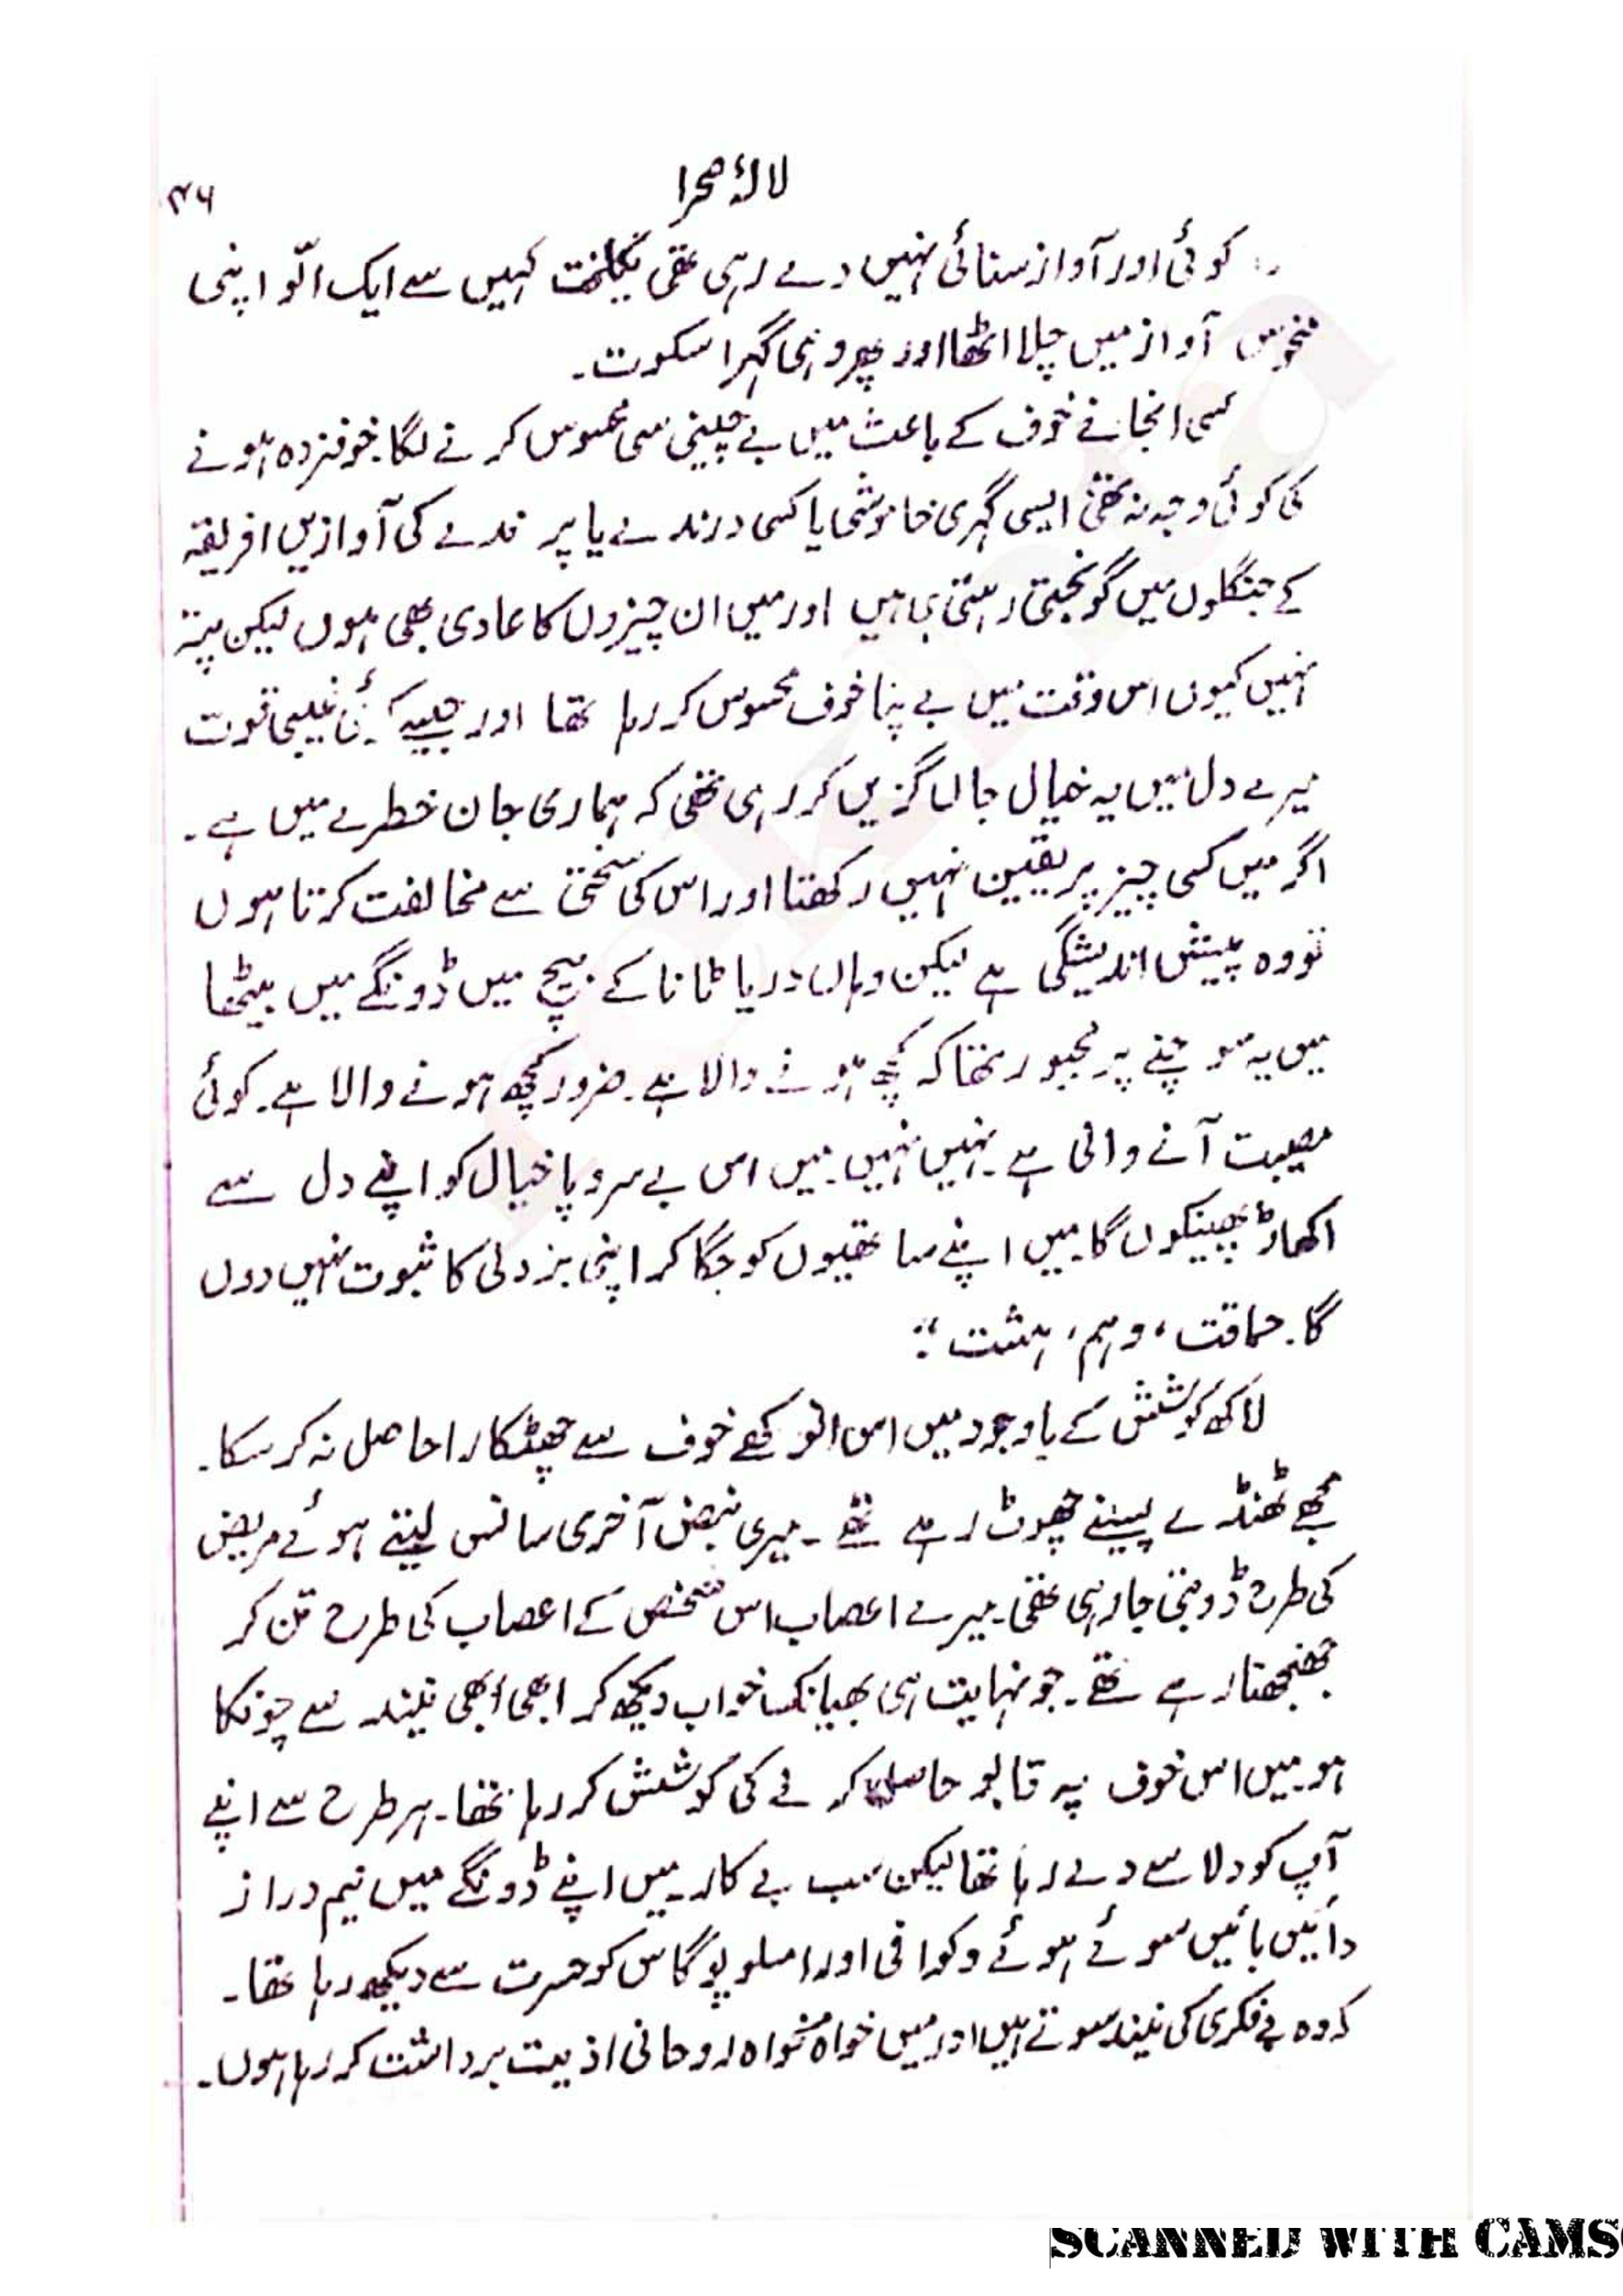 لالۂ صحرا
۳۶
کوئی اور آواز سنائی نہیں دے رہی تھی یکلخت کہیں سے ایک الّو اپنی
منحوس آواز میں چلا اٹھا اور پھر وہی گہرا سکوت۔
کسی انجانے خوف کے باعث میں بے چینی سی محسوس کرنے لگا۔ خوفزدہ ہونے
کی کوئی وجہ نہ تھی ایسی گہری خاموشی یا کسی درندے یا پرندے کی آوازیں افریقہ
کے جنگلوں میں گونجتی رہتی ہی ہیں اور میں ان چیزوں کا عادی بھی ہوں لیکن پتہ
نہیں کیوں اس وقت میں بے پنا خوف محسوس کر رہا تھا اور جیسے کوئی غیبی قوت
میرے دل میں یہ خیال جاں گزیں کر رہی تھی کہ ہماری جان خطرے میں ہے۔
اگر میں کسی چیز پر یقین نہیں رکھتا اور اس کی سختی سے مخالفت کرتا ہوں
تو وہ پیش اندیشگی ہے لیکن وہاں دریا ٹانا کے بیچ میں ڈونگے میں بیٹھا
میں یہ سوچنے پر مجبور تھا کہ کچھ ہونے والا ہے۔ ضرور کچھ ہونے والا ہے۔ کوئی
مصیبت آنے والی ہے۔ نہیں نہیں۔ میں اس بے سروپا خیال کو اپنے دل سے
اکھاڑ پھینکوں گا۔ میں اپنے ساتھیوں کو جگا کر اپنی بزدلی کا ثبوت نہیں دوں
گا۔ حماقت، وہم، ہشت ؛؛
لاکھ کوشش کے باوجود میں اس انوکھے خوف سے چھٹکارا حاصل نہ کر سکا۔
مجھے ٹھنڈے پسینے چھوٹ رہے تھے۔ میری نبض آخری سانس لیتے ہوئے مریض
کی طرح ڈوبتی جا رہی تھی۔ میرے اعصاب اس شخص کے اعصاب کی طرح تن کر
جھنجھنا رہے تھے۔ جو نہایت ہی بھیانک خواب دیکھ کر ابھی ابھی نیند سے چونکا
ہو۔ میں اس خوف پہ قابو حاصل کرنے کی کوشش کر رہا تھا۔ ہر طرح سے اپنے
آپ کو دلاسے دے رہا تھا لیکن سب بے کار۔ میں اپنے ڈونگے میں نیم دراز
دائیں بائیں سوئے ہوئے وکوافی اور امسلوپوگاس کو حسرت سے دیکھ رہا تھا۔
کہ وہ بے فکری کی نیند سوتے ہیں اور میں خواہ مخواہ روحانی اذیت برداشت کر رہا ہوں۔
SCANNED WITH CAMS